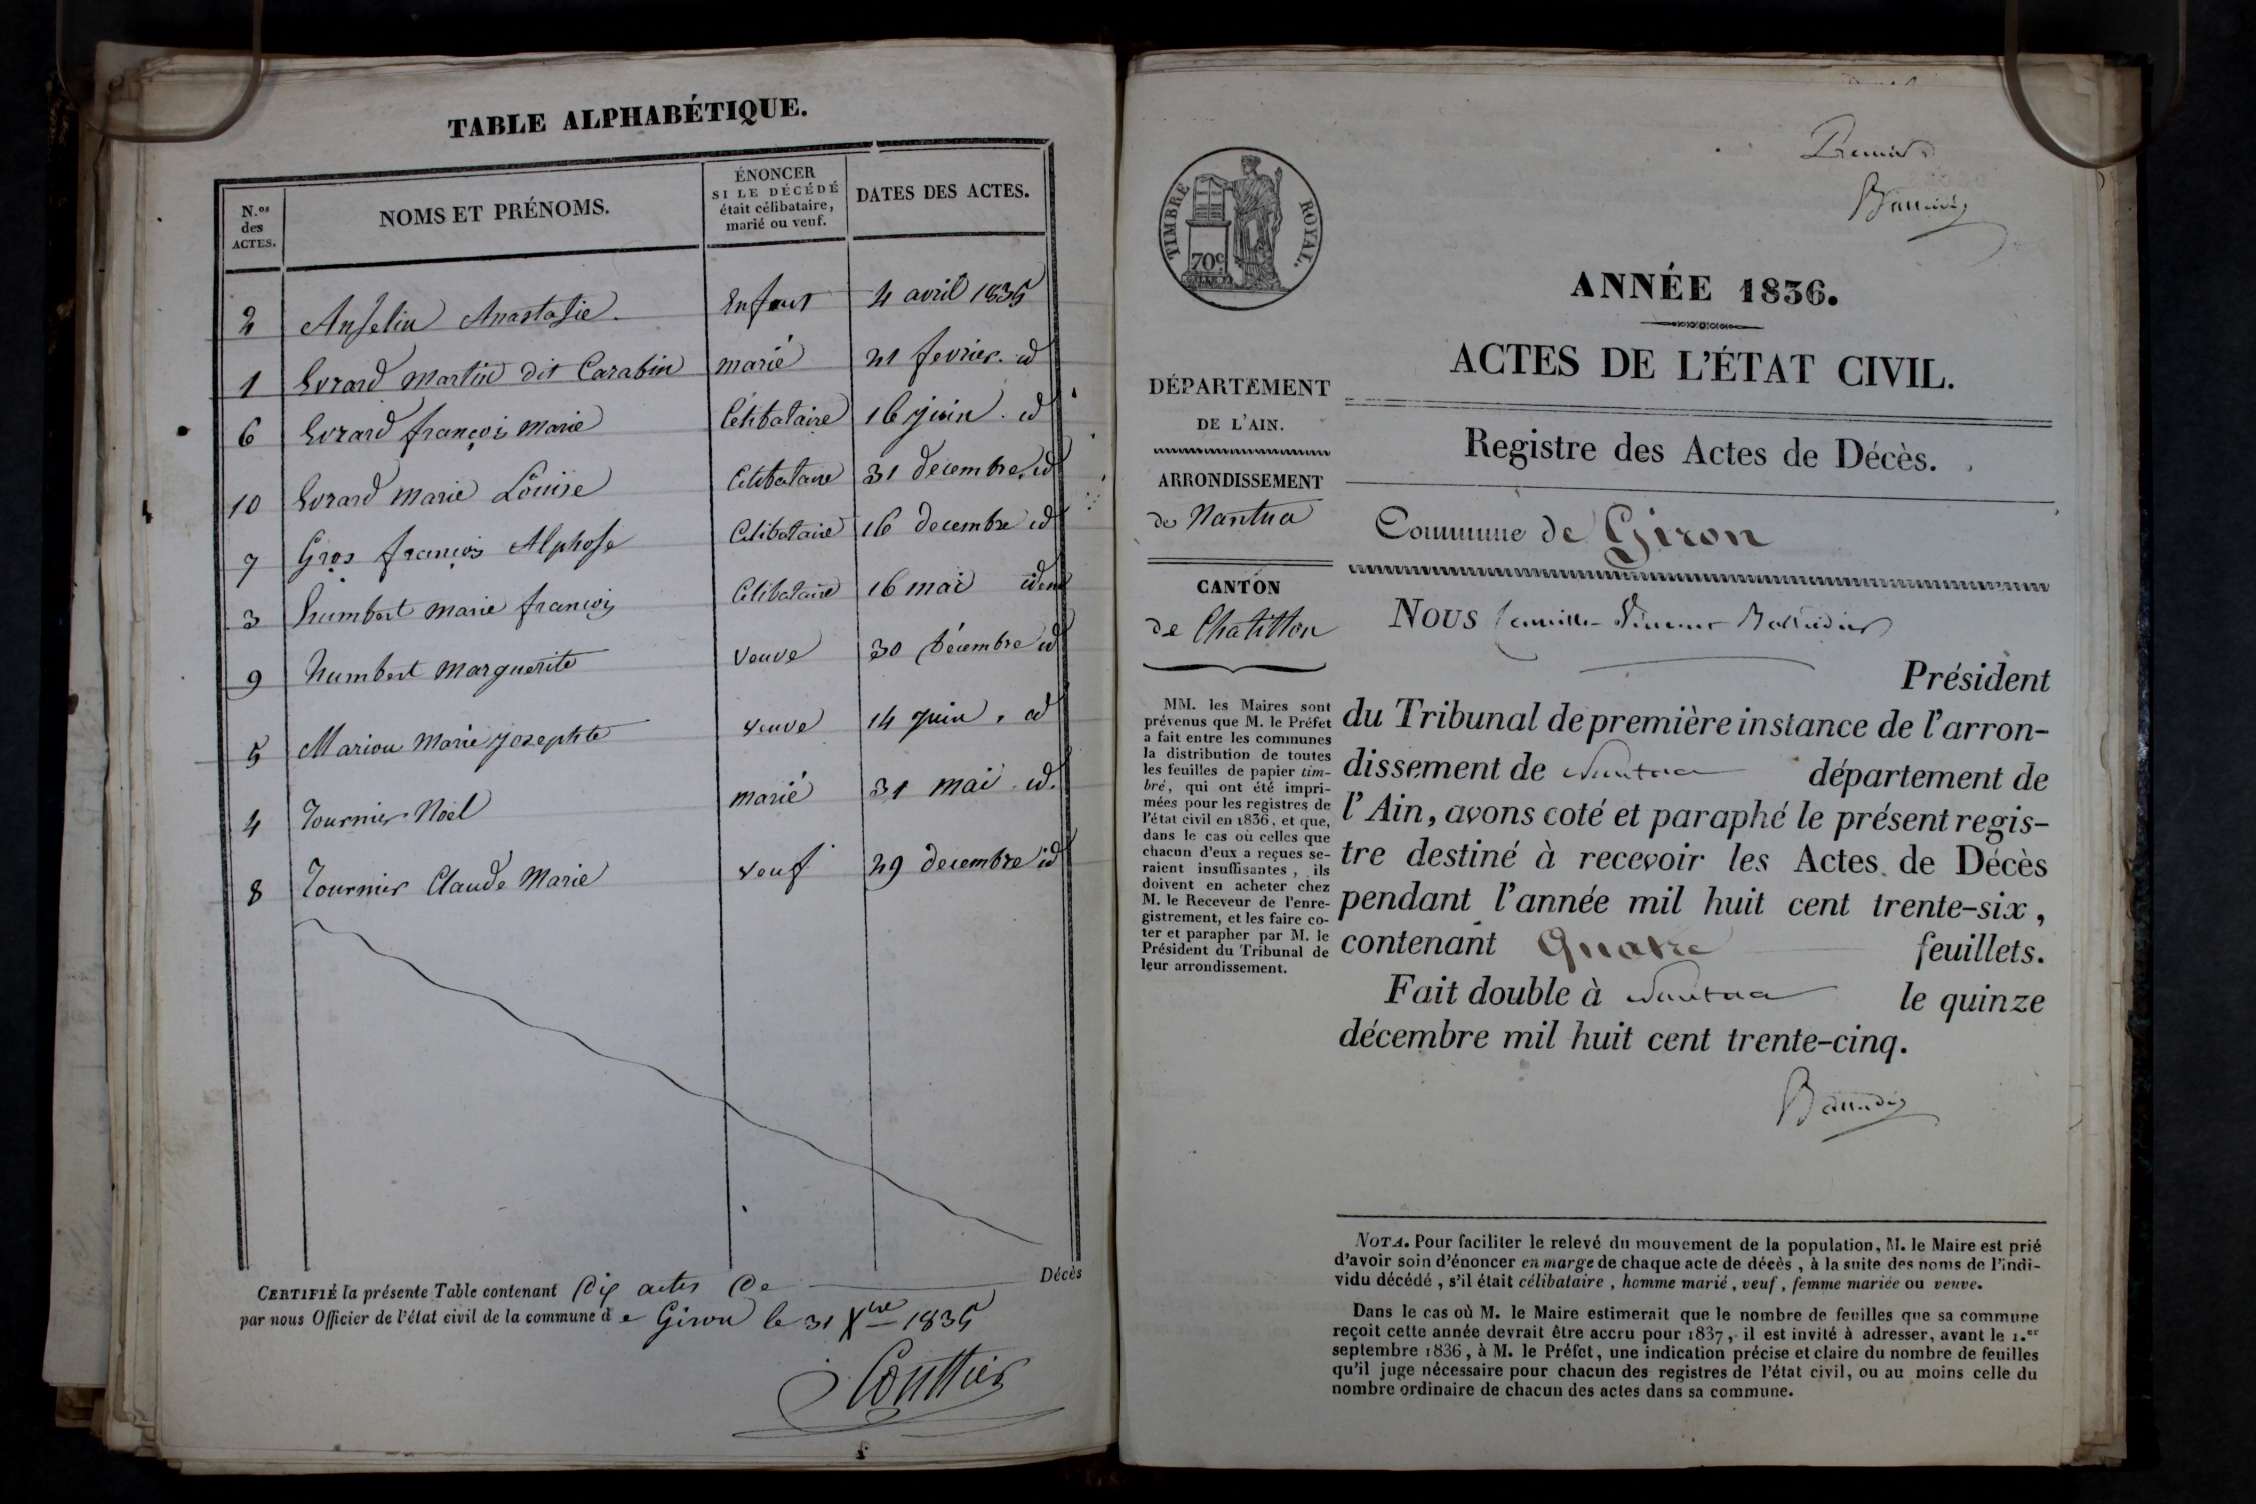 TABLE ALPHABÉTIQUE.
N.os des ACTES.
NOMS ET PRÉNOMS.
ÉNONCER
SI LE DÉCÉDÉ
était célibataire,
marié ou veuf.
DATES DES ACTES.
2 Anselin Anastasie. Enfant 4 avril 1835
1 Evrard Martin dit Carabin marié 21 fevrier. id
6 Evrard françois Marie Célibataire 16 juin. id
10 Evrard Marie Louise Célibataire 31 decembre. id
7 Gros françois Alphose Célibataire 16 decembre id
3 humbert marie françois Célibataire 16 mai idem
9 humbert Marguerite Veuve 30 Décembre id
5 Mariou Marie Josephte veuve 14 Juin, id
4 Tournier Noël Marié 31 mai. id.
8 Tournier Claude Marie Veuf 29 decembre id
CERTIFIÉ la présente Table contenant Dix actes De Décès
par nous Officier de l'état civil de la commune d e Giron le 31 Xbre 1835
Premier
TIMBRE ROYAL.
70c
ANNÉE 1836.
ACTES DE L'ÉTAT CIVIL.
Registre des Actes de Décès.
DÉPARTEMENT
DE L'AIN.
ARRONDISSEMENT
de Nantua
CANTON
de Chatillon
MM. les Maires sont
prévenus que M. le Préfet
a fait entre les communes
la distribution de toutes
les feuilles de papier tim-
bré, qui ont été impri-
mées pour les registres de
l'état civil en 1836, et que,
dans le cas où celles que
chacun d'eux a reçues se-
raient insuffisantes, ils
doivent en acheter chez
M. le Receveur de l'enre-
gistrement, et les faire co-
ter et parapher par M. le
Président du Tribunal de
leur arrondissement.
Commune de Giron
NOUS Camille
Président
du Tribunal de première instance de l'arron-
dissement de Nantua département de
l'Ain, avons coté et paraphé le présent regis-
tre destiné à recevoir les Actes de Décès
pendant l'année mil huit cent trente-six,
contenant Quatre feuillets.
Fait double à Nantua le quinze
décembre mil huit cent trente-cinq.
NOTA. Pour faciliter le relevé du mouvement de la population, M. le Maire est prié
d'avoir soin d'énoncer en marge de chaque acte de décès, à la suite des noms de l'indi-
vidu décédé, s'il était célibataire, homme marié, veuf, femme mariée ou veuve.
Dans le cas où M. le Maire estimerait que le nombre de feuilles que sa commune
reçoit cette année devrait être accru pour 1837, il est invité à adresser, avant le 1.er
septembre 1836, à M. le Préfet, une indication précise et claire du nombre de feuilles
qu'il juge nécessaire pour chacun des registres de l'état civil, ou au moins celle du
nombre ordinaire de chacun des actes dans sa commune.